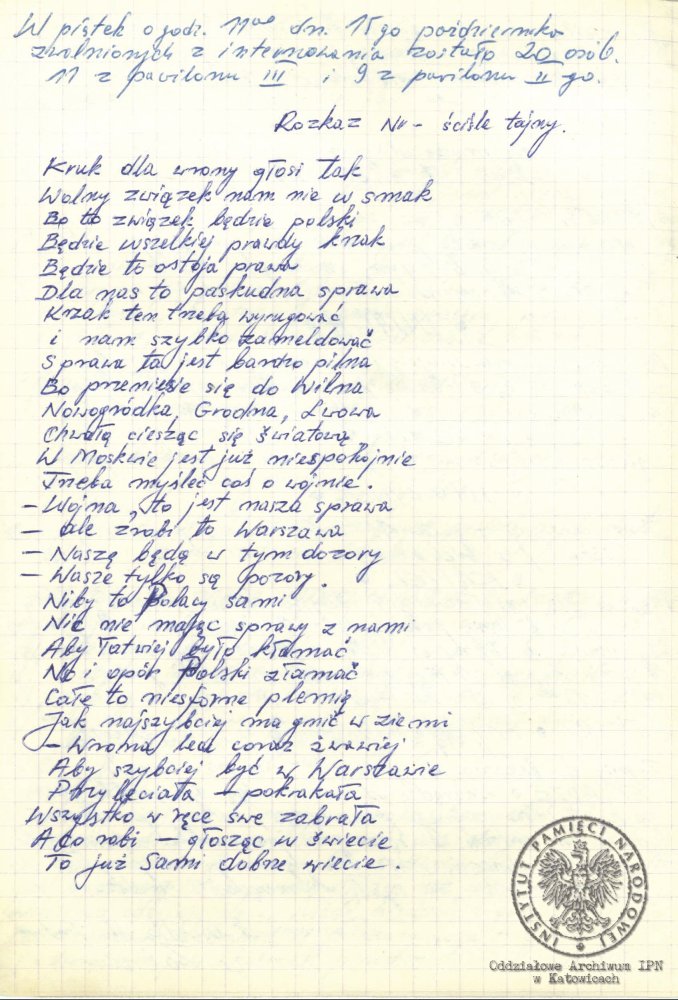 W piątek o godz. 11oo dn. 15go października
zwolnionych z internowania zostało 20 osób.
11 z pawilonu III i 9 z pawilonu II go.
Rozkaz Nr - ściśle tajny.
Kruk dla wrony głosi tak
Wolny związek nam nie w smak
Bo to związek będzie polski
Będzie wszelkiej prawdy krzak
Będzie to ostoja prawa
Dla nas to paskudna sprawa
Krzak ten trzeba wyrugować
i nam szybko zameldować
Sprawa ta jest bardzo pilna
Bo przeniesie się do Wilna
Nowogródka, Grodna, Lwowa
Chwałą ciesząc się światową.
W Moskwie jest już niespokojnie
Trzeba myśleć coś o wojnie.
- Wojna, to jest nasza sprawa
- ale zrobi to Warszawa
- Naszą będą w tym dozory
- Wasze tylko są pozory.
Niby to Polacy sami
Nic nie mając sprawy z nami
Aby łatwiej było kłamać
No i opór Polski złamać
Całe to niesforne plemię
Jak najszybciej ma gnić w ziemi
- Wrona leci coraz żwawiej
Aby szybciej być w Warszawie
Przyleciała - pokrakała
Wszystko w ręce swe zabrała
A co robi - głosząc w świecie
To już sami dobrze wiecie.
INSTYTUT PAMIĘCI NARODOWEJ
Oddziałowe Archiwum IPN
w Katowicach